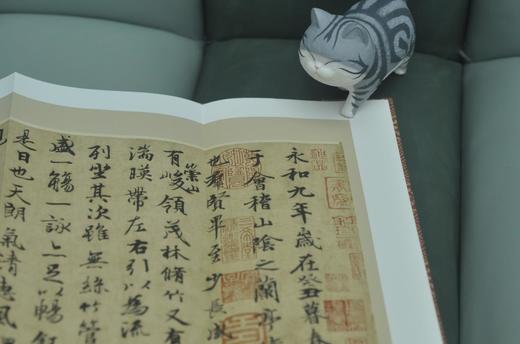 永和九年歲在癸丑暮春
于會稽山陰之蘭亭
也羣賢畢至少長咸
有崇山峻領茂林脩竹又有
湍暎帶左右引以為流
列坐其次雖無絲竹管
盛一觴一詠亦足以暢敘
是日也天朗氣清惠風